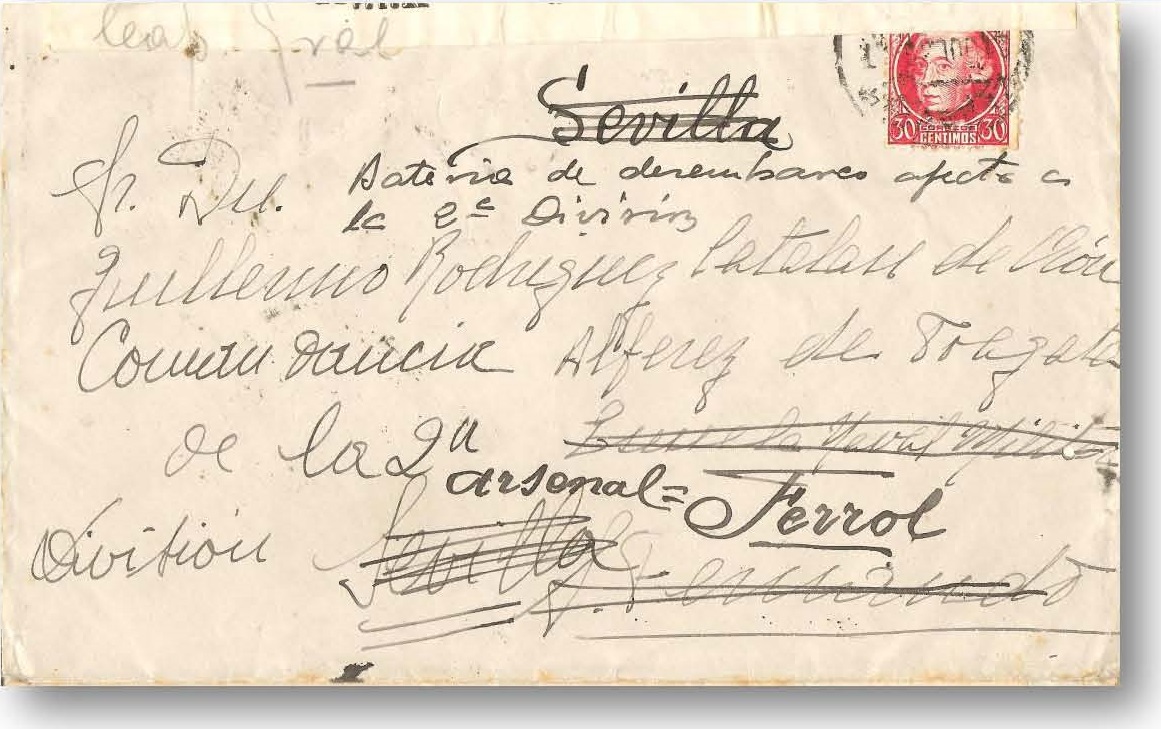 Gral
30 CORREOS 30
CENTIMOS
Sevilla
Sr. Dn. Bateria de desembarco afecta a
la 2ª División
Guillermo Rodriguez Catalan de Ocón
Comandancia Alferez de Fragata
de la 2ª Escuela Naval Militar
arsenal= Ferrol
División Sevilla S. Fernando